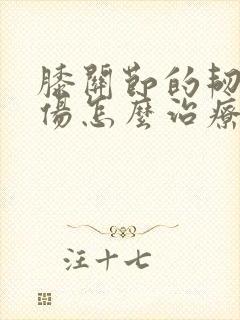 膝關節的韌
傷怎麼治療
注十七